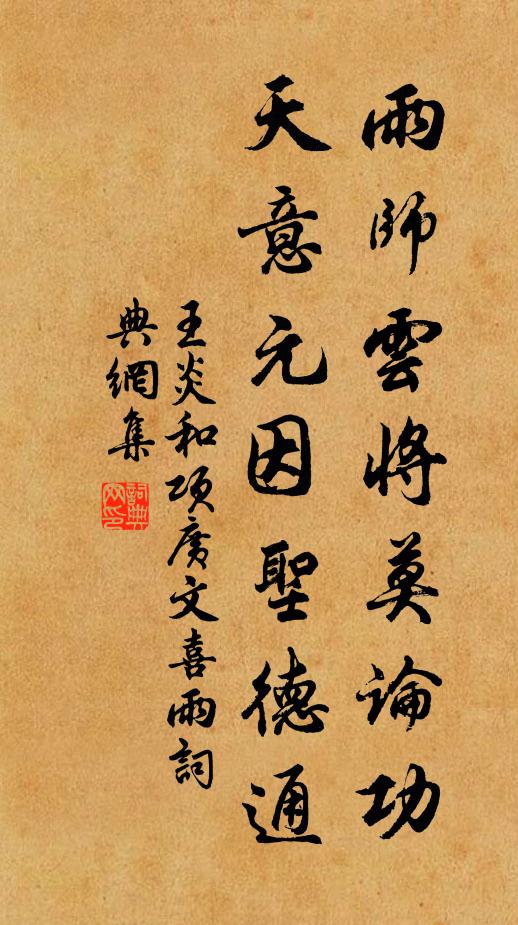 雨師雲將莫論功
天意元因聖德通
王炎和項廣文喜雨詞
典網集
詞典
網印